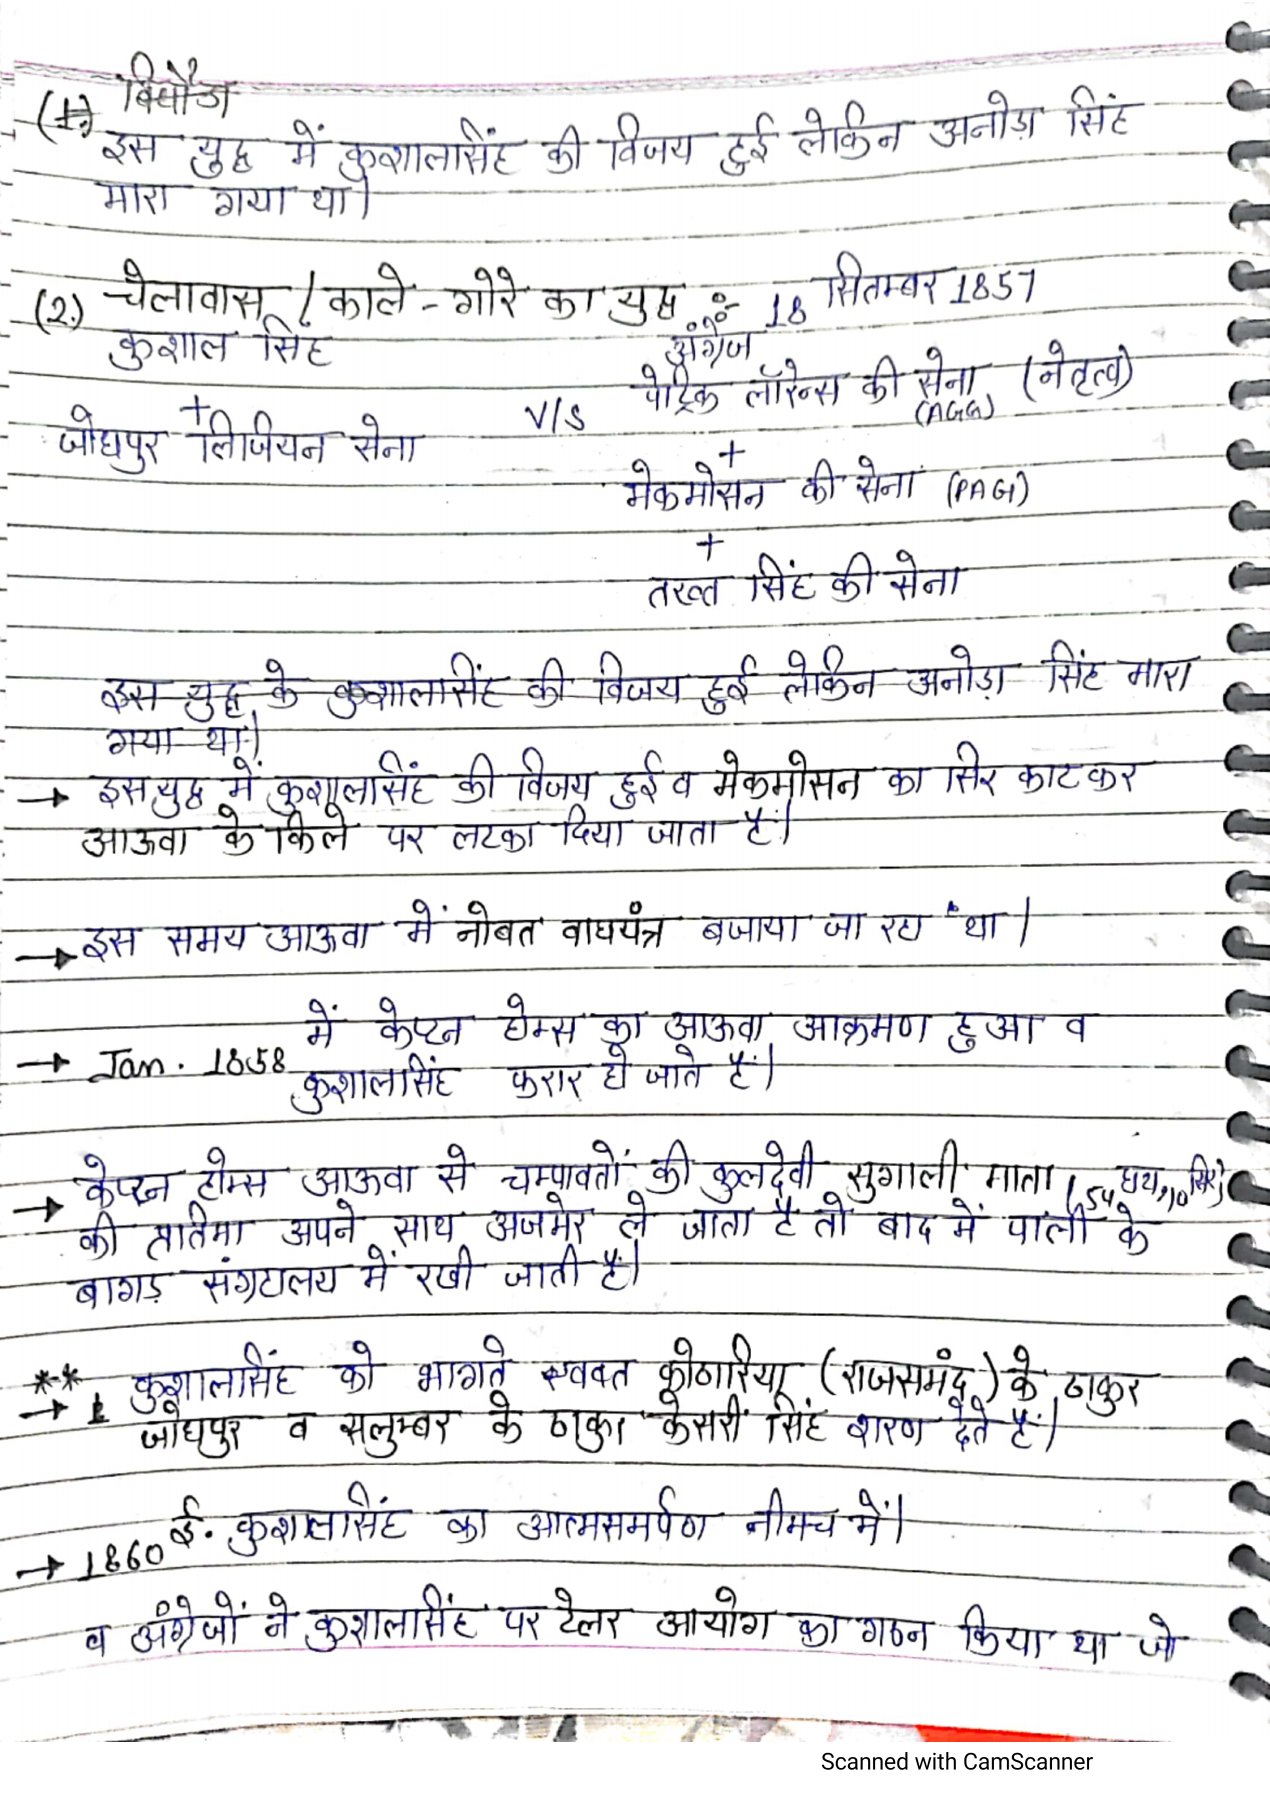 (1.) बिथौडा
इस युद्ध में कुशालसिंह की विजय हुई लेकिन अनोड़ा सिंह
मारा गया था।
(2.) चेलावास / काले-गोरे का युद्ध :- 18 सितम्बर 1857
कुशाल सिंह अंग्रेज
पेट्रिक लॉरेन्स की सेना (नेतृत्व)
(AGG)
+ V/S
जोधपुर लिजियन सेना
+
मेकमोसन की सेना (PAG)
+
तख्त सिंह की सेना
इस युद्ध के कुशालसिंह की विजय हुई लेकिन अनोड़ा सिंह मारा
गया था।
→ इस युद्ध में कुशालसिंह की विजय हुई व मेकमोसन का सिर काटकर
आऊवा के किले पर लटका दिया जाता है।
→ इस समय आऊवा में नोबत वाघयंत्र बजाया जा रहा था।
→ Jan. 1858 में केप्टन होम्स का आऊवा आक्रमण हुआ व
कुशालसिंह फरार हो जाते हैं।
→ केप्टन होम्स आऊवा से चम्पावतों की कुलदेवी सुगाली माता (54 हाथ, 10 सिर)
की प्रतिमा अपने साथ अजमेर ले जाता है तो बाद में पाली के
बागड़ संग्रहालय में रखी जाती है।
**
→ कुशालसिंह को भागते वक्त कोठारिया (राजसमंद) के ठाकुर
जोधपुर व सलुम्बर के ठाकुर केसरी सिंह शरण देते हैं।
→ 1860 ई. कुशालसिंह का आत्मसमर्पण नीमच में।
व अंग्रेजों ने कुशालसिंह पर टेलर आयोग का गठन किया था जो
Scanned with CamScanner